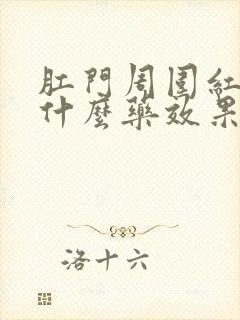 肛門周圍紅
什麼藥效果
洛十六